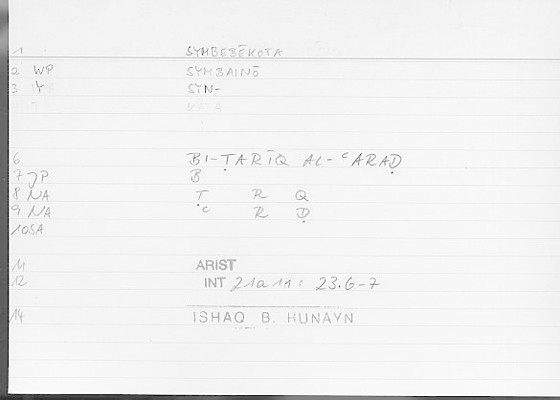 1 SYMBEBĒKOTA
2 WP SYMBAINŌ
3 Y SYN-
6 BI-ṬARĪQ AL-ᶜARAḌ
7 JP B
8 NA Ṭ R Q
9 NA ᶜ R Ḍ
10 SA
11 ARIST
12 INT 21a11: 23.6-7
14 ISHAQ B. HUNAYN